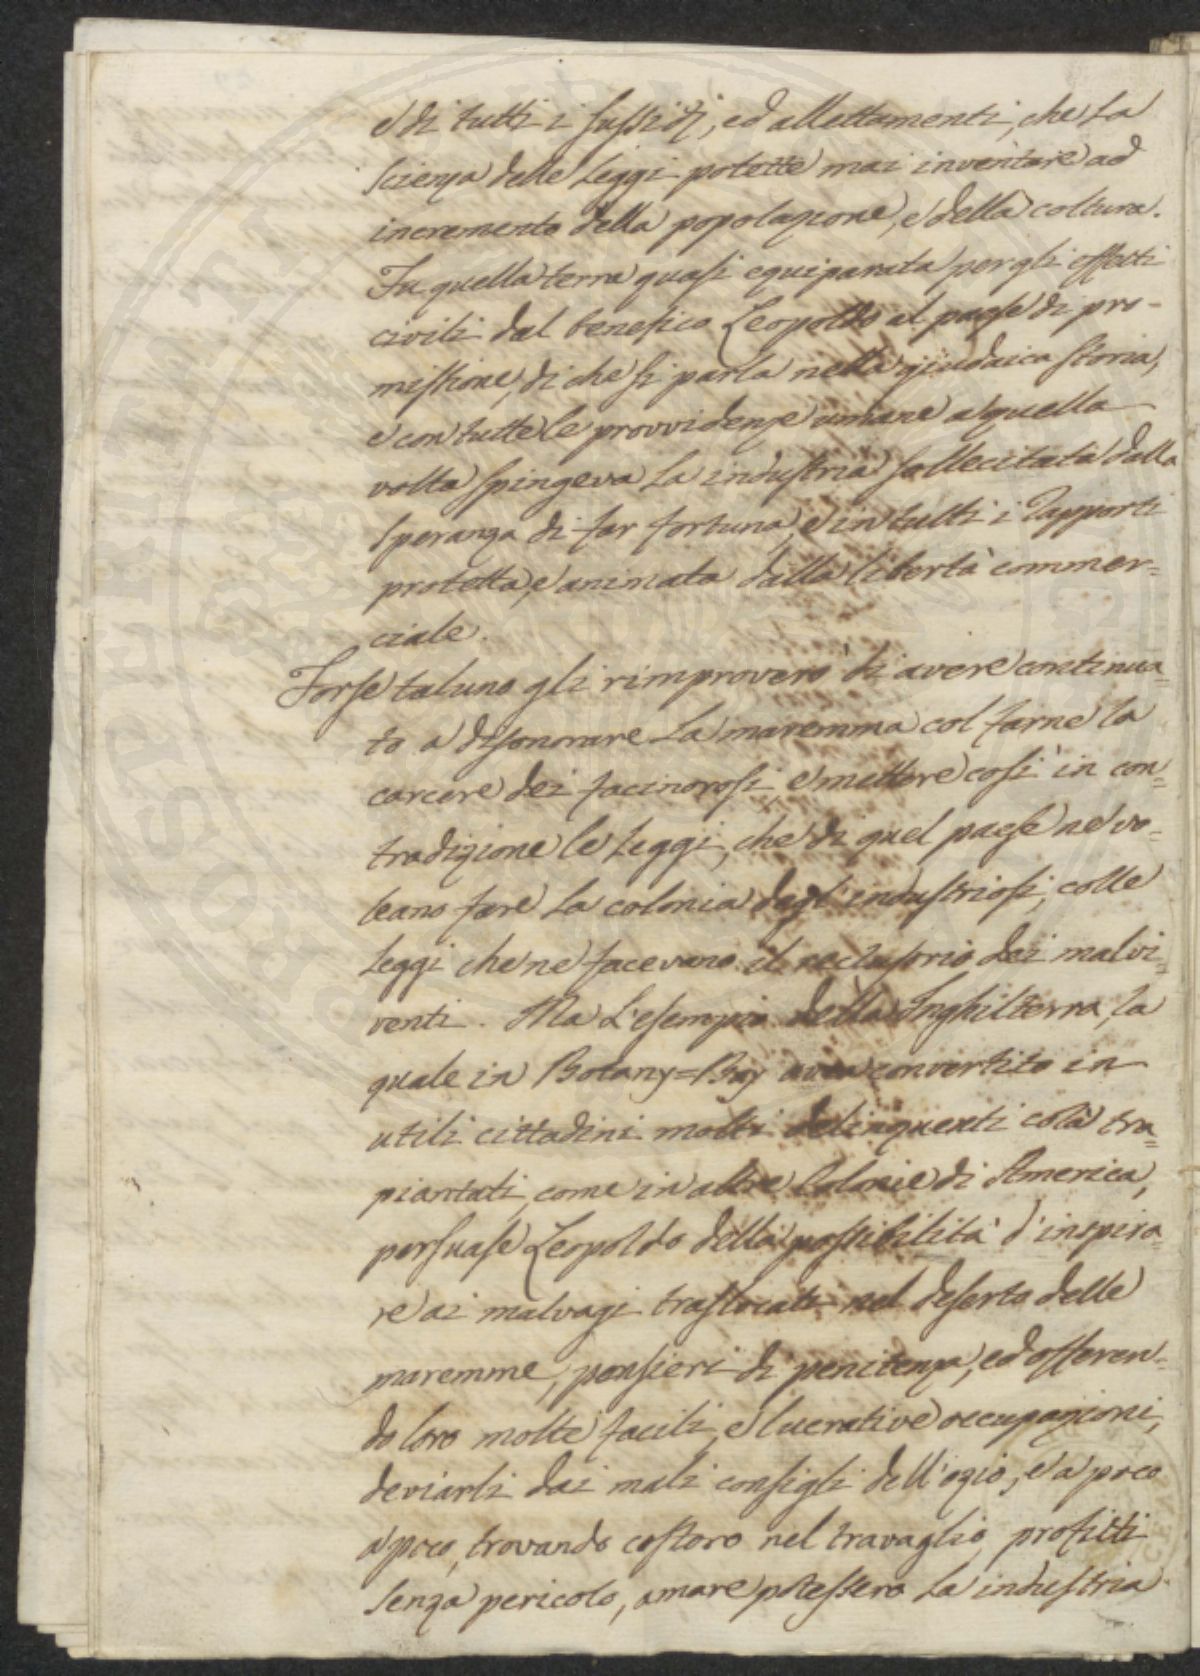 e di tutti i sussidj, ed allettamenti, che la
scienza delle Leggi potette mai inventare ad
incremento della popolazione, e della coltura.
Fu quella terra quasi equiparata per gli effetti
civili dal benefico Leopoldo al paese di pro-
missione, di che si parla nella giudaica storia,
e con tutte le provvidenze umane a quella
volta spingeva la industria sollecitata dalla
speranza di far fortuna, e in tutti i rapporti
protetta, e animata dalla libertà commer=
ciale.
Forse taluno gli rimproverò di avere continua=
to a disonorare la maremma col farne la
carcere dei facinorosi, e mettere così in con=
tradizione le Leggi, che di quel paese ne vo=
leano fare la colonia degl'industriosi, colle
Leggi che ne facevano il reclusorio dei malvi=
venti. Ma l'esempio della Inghilterra, la
quale in Botany=Bay avea convertito in
utili cittadini molti delinquenti colà tra=
piantati, come in altre Colonie di America,
persuase Leopoldo della possibilità d'inspira=
re ai malvagi traslocati nel deserto delle
maremme, pensieri di penitenza, ed offeren=
do loro molte facili, e lucrative occupazioni,
deviarli dai mali consigli dell'ozio, e a poco
a poco, trovando costoro nel travaglio profitti
senza pericolo, amare potessero la industria